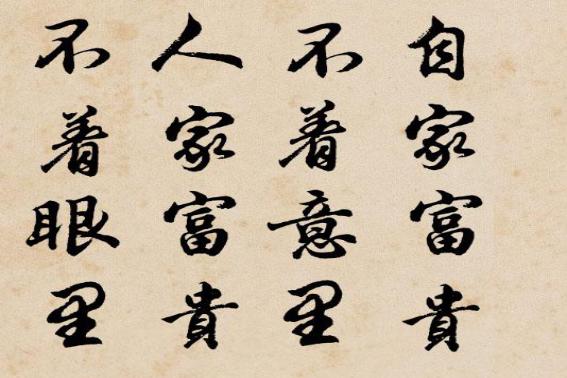 自家富貴
不着意里
人家富貴
不着眼里